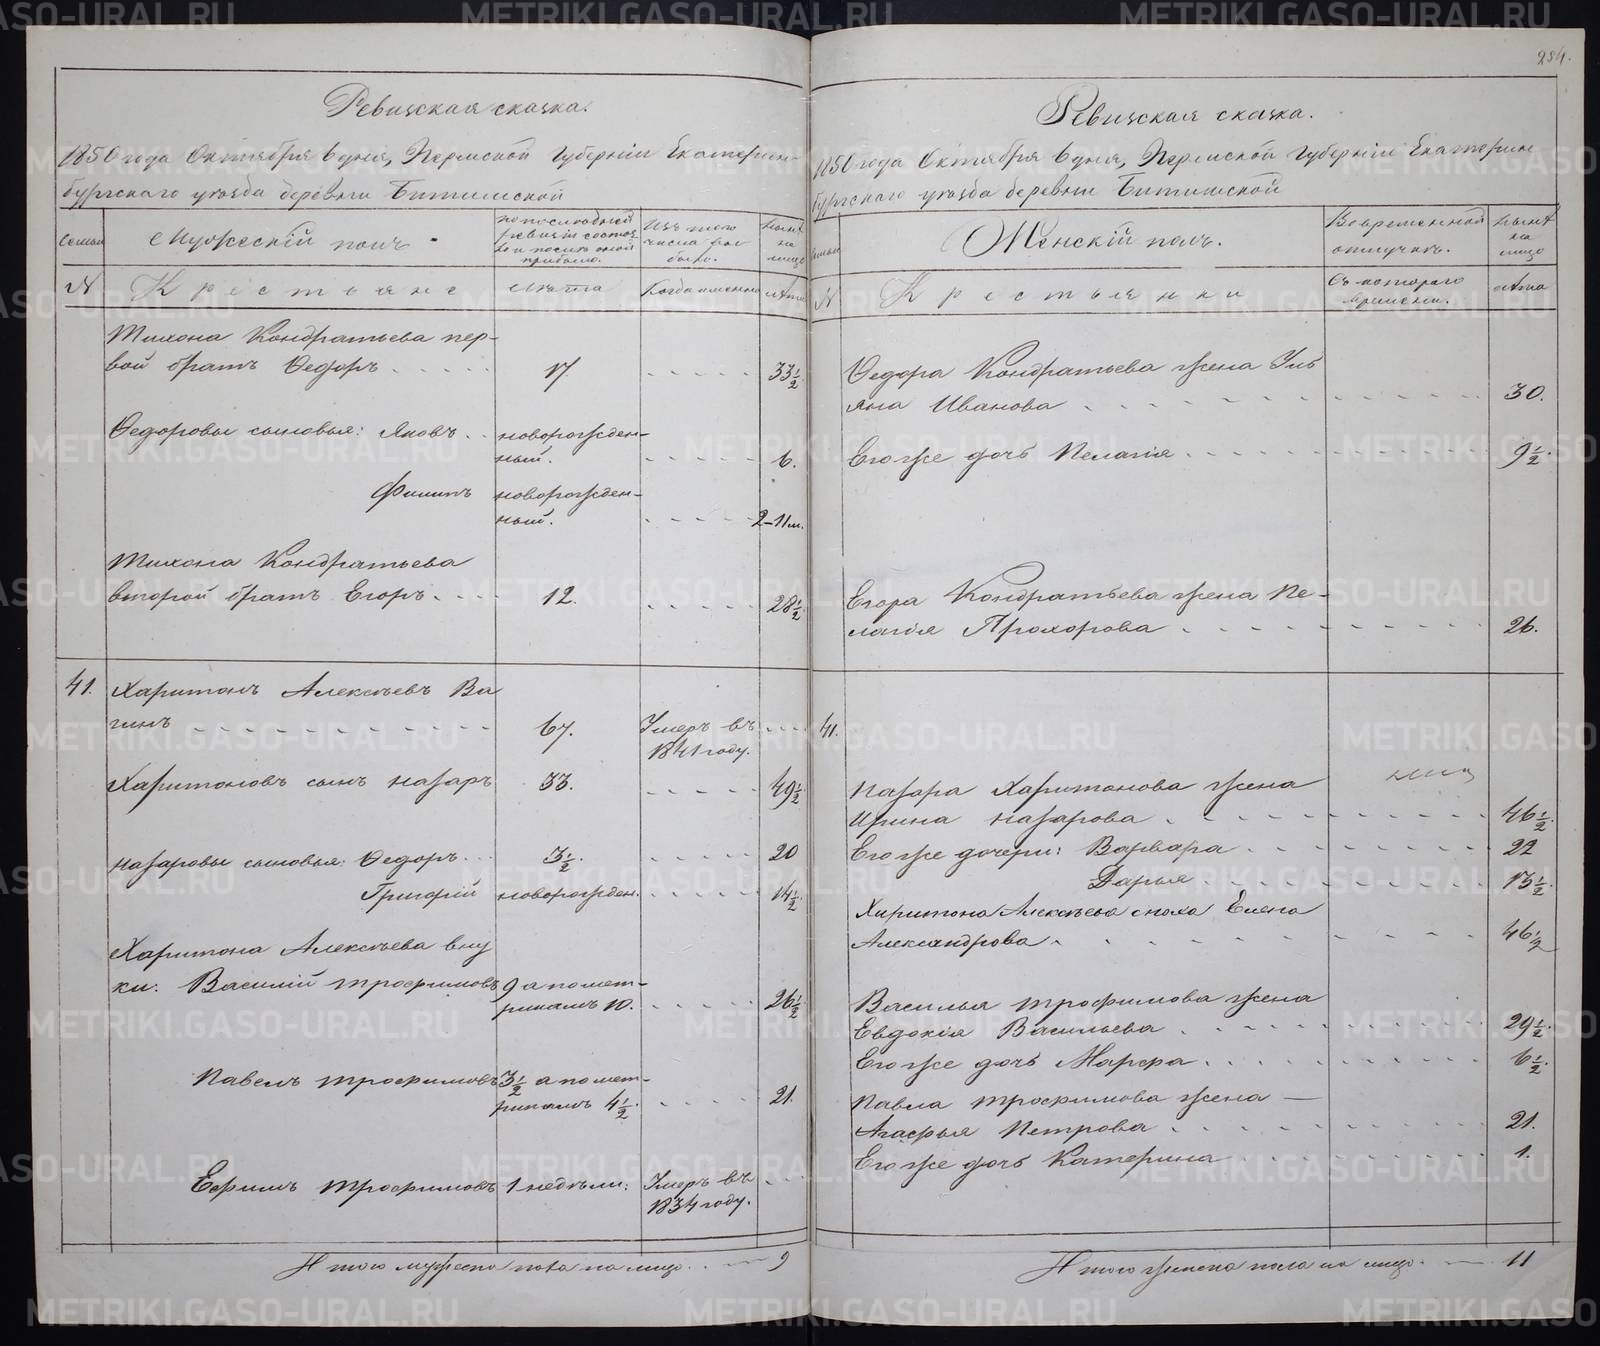 284.
Ревизская сказка.
1850 года Октября 6 дня, Пермской Губерніи Екатерин-
бургскаго уѣзда деревни Битимской
Семьи
Мужескій полъ.
по послѣдней
ревизіи состоя-
ло и послѣ оной
прибыло.
Изъ того
числа вы
было.
Нынѣ
на
лицо
N
Крестьяне
Лѣта
Когда именно
лѣта
Тихона Кондратьева пер-
вой братъ Ѳедоръ . . . . . 17 . . . . . 33½.
Ѳедоровы сыновья: Яковъ . . новорожден-
ный. . . . . . 6.
Филипъ новорожден-
ный. . . . . . 2-11 м.
Тихона Кондратьева
второй братъ Егоръ . . . . 12. . . . . . 28½
41. Харитонъ Алексѣевъ Ва
гинъ . . . . . . . . . . 67. Умеръ въ . . .
1841 году.
Харитоновъ сынъ Назаръ 33. . . . . . 49½
Назаровы сыновья: Ѳедоръ . . . 3½. . . . . . 20
Григорій новорожден. . . . . . 14½
Харитона Алексѣева вну
ки: Василій Трофимовъ 9 а по мет-
рикамъ 10. . . . . . 26½
Павелъ Трофимовъ 3½ а по мет-
рикамъ 4½. . . . . 21.
Ефимъ Трофимовъ 1 недѣли. Умеръ въ . . .
1834 году.
Итого мужеска пола на лицо . . . 9
Ревизская сказка.
1850 года Октября 6 дня, Пермской Губерніи Екатерин
бургскаго уѣзда деревни Битимской
Семьи
Женскій полъ.
Во временной
отлучкѣ.
Нынѣ
на
лицо
N
Крестьянки
Съ котораго
времени.
лѣта
Ѳедора Кондратьева жена Уль
яна Иванова . . . . . . . . . . 30.
Его же дочь Пелагія . . . . . . . . . 9½.
Егора Кондратьева жена Пе-
лагія Прохорова . . . . . . . . . 26.
41.
Назара Харитонова жена
Ирина Назарова . . . . . . . . . 46½.
Его же дочери: Варвара . . . . . . . . 22
Дарья . . . . . . . . 13½.
Харитона Алексѣева сноха Елена
Александрова . . . . . . . . . 46½
Василья Трофимова жена
Евдокія Васильева . . . . . . . . 29½.
Его же дочь Марфа . . . . . . . . 6½.
Павла Трофимова жена —
Агафья Петрова . . . . . . . . 21.
Его же дочь Катерина . . . . . . . . 1.
Итого женска пола на лицо . . . 11
METRIKI.GASO-URAL.RU